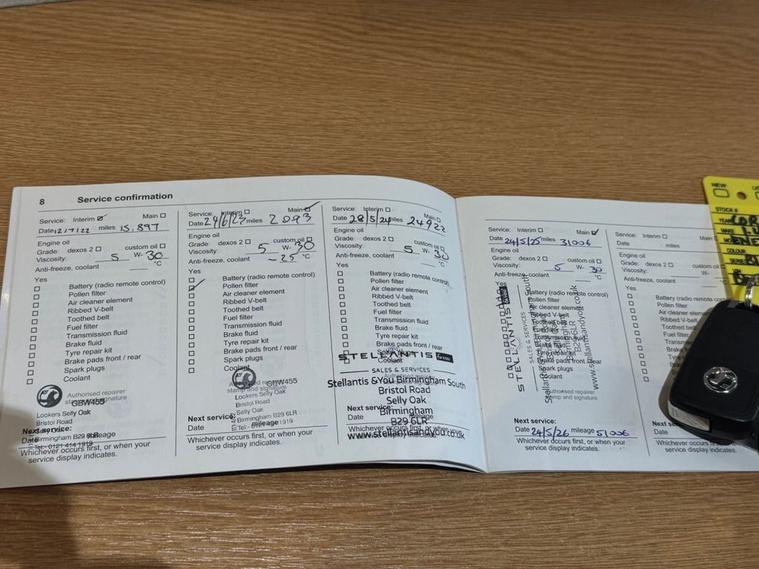 8 Service confirmation
Service: Interim Main
Date 12/7/22 miles 15.897
Engine oil
Grade: dexos 2 custom oil
Viscosity: 5 W- 30
Anti-freeze, coolant °C
Yes
Battery (radio remote control)
Pollen filter
Air cleaner element
Ribbed V-belt
Toothed belt
Fuel filter
Transmission fluid
Brake fluid
Tyre repair kit
Brake pads front / rear
Spark plugs
Coolant
Authorised repairer
GBW455
Lookers Selly Oak
Bristol Road
Next service:
Birmingham B29 6LR
Date mileage
Whichever occurs first, or when your
service display indicates.
Service: Interim Main
Date 29/6/23 miles
Engine oil
Grade: dexos 2 custom oil
Viscosity: 5 W- 30
Anti-freeze, coolant -25 °C
Yes
Battery (radio remote control)
Pollen filter
Air cleaner element
Ribbed V-belt
Toothed belt
Fuel filter
Transmission fluid
Brake fluid
Tyre repair kit
Brake pads front / rear
Spark plugs
Coolant
GBW455
Selly Oak
Bristol Road
Next service:
Birmingham B29 6LR
Date mileage
Whichever occurs first, or when your
service display indicates.
Service: Interim Main
Date 28/5/24 miles 24922
Engine oil
Grade: dexos 2 custom oil
Viscosity: 5 W- 30
Anti-freeze, coolant °C
Yes
Battery (radio remote control)
Pollen filter
Air cleaner element
Ribbed V-belt
Toothed belt
Fuel filter
Transmission fluid
Brake fluid
Tyre repair kit
Brake pads front / rear
STELLANTIS &YOU
SALES & SERVICES
Stellantis &You Birmingham South
Bristol Road
Selly Oak
Birmingham
B29 6LR
www.stellantisandyou.co.uk
Next service:
Date
Whichever occurs first, or when your
service display indicates.
Service: Interim Main
Date 24/5/25 miles 31006
Engine oil
Grade: dexos 2 custom oil
Viscosity: 5 W- 30
Anti-freeze, coolant °C
Yes
Battery (radio remote control)
Pollen filter
Air cleaner element
Ribbed V-belt
Toothed belt
Fuel filter
Transmission fluid
Brake fluid
Tyre repair kit
Brake pads front / rear
Spark plugs
Coolant
STELLANTIS
SALES & SERVICES
Authorised repairer
stamp and signature
Next service:
Date 24/5/26 mileage 51006
Whichever occurs first, or when your
service display indicates.
Service: Interim
Date miles
Engine oil
Grade: dexos 2
Viscosity:
Anti-freeze, coolant
Yes
Battery (radio remote
Pollen filter
Air cleaner element
Ribbed V-belt
Toothed belt
Fuel filter
Transmission fluid
Brake fluid
Tyre repair kit
Brake pads front
Spark plugs
Coolant
Date
Whichever occurs first, or
service display indicates.
NEW
STOCK #
YEAR
MAKE
COLOUR